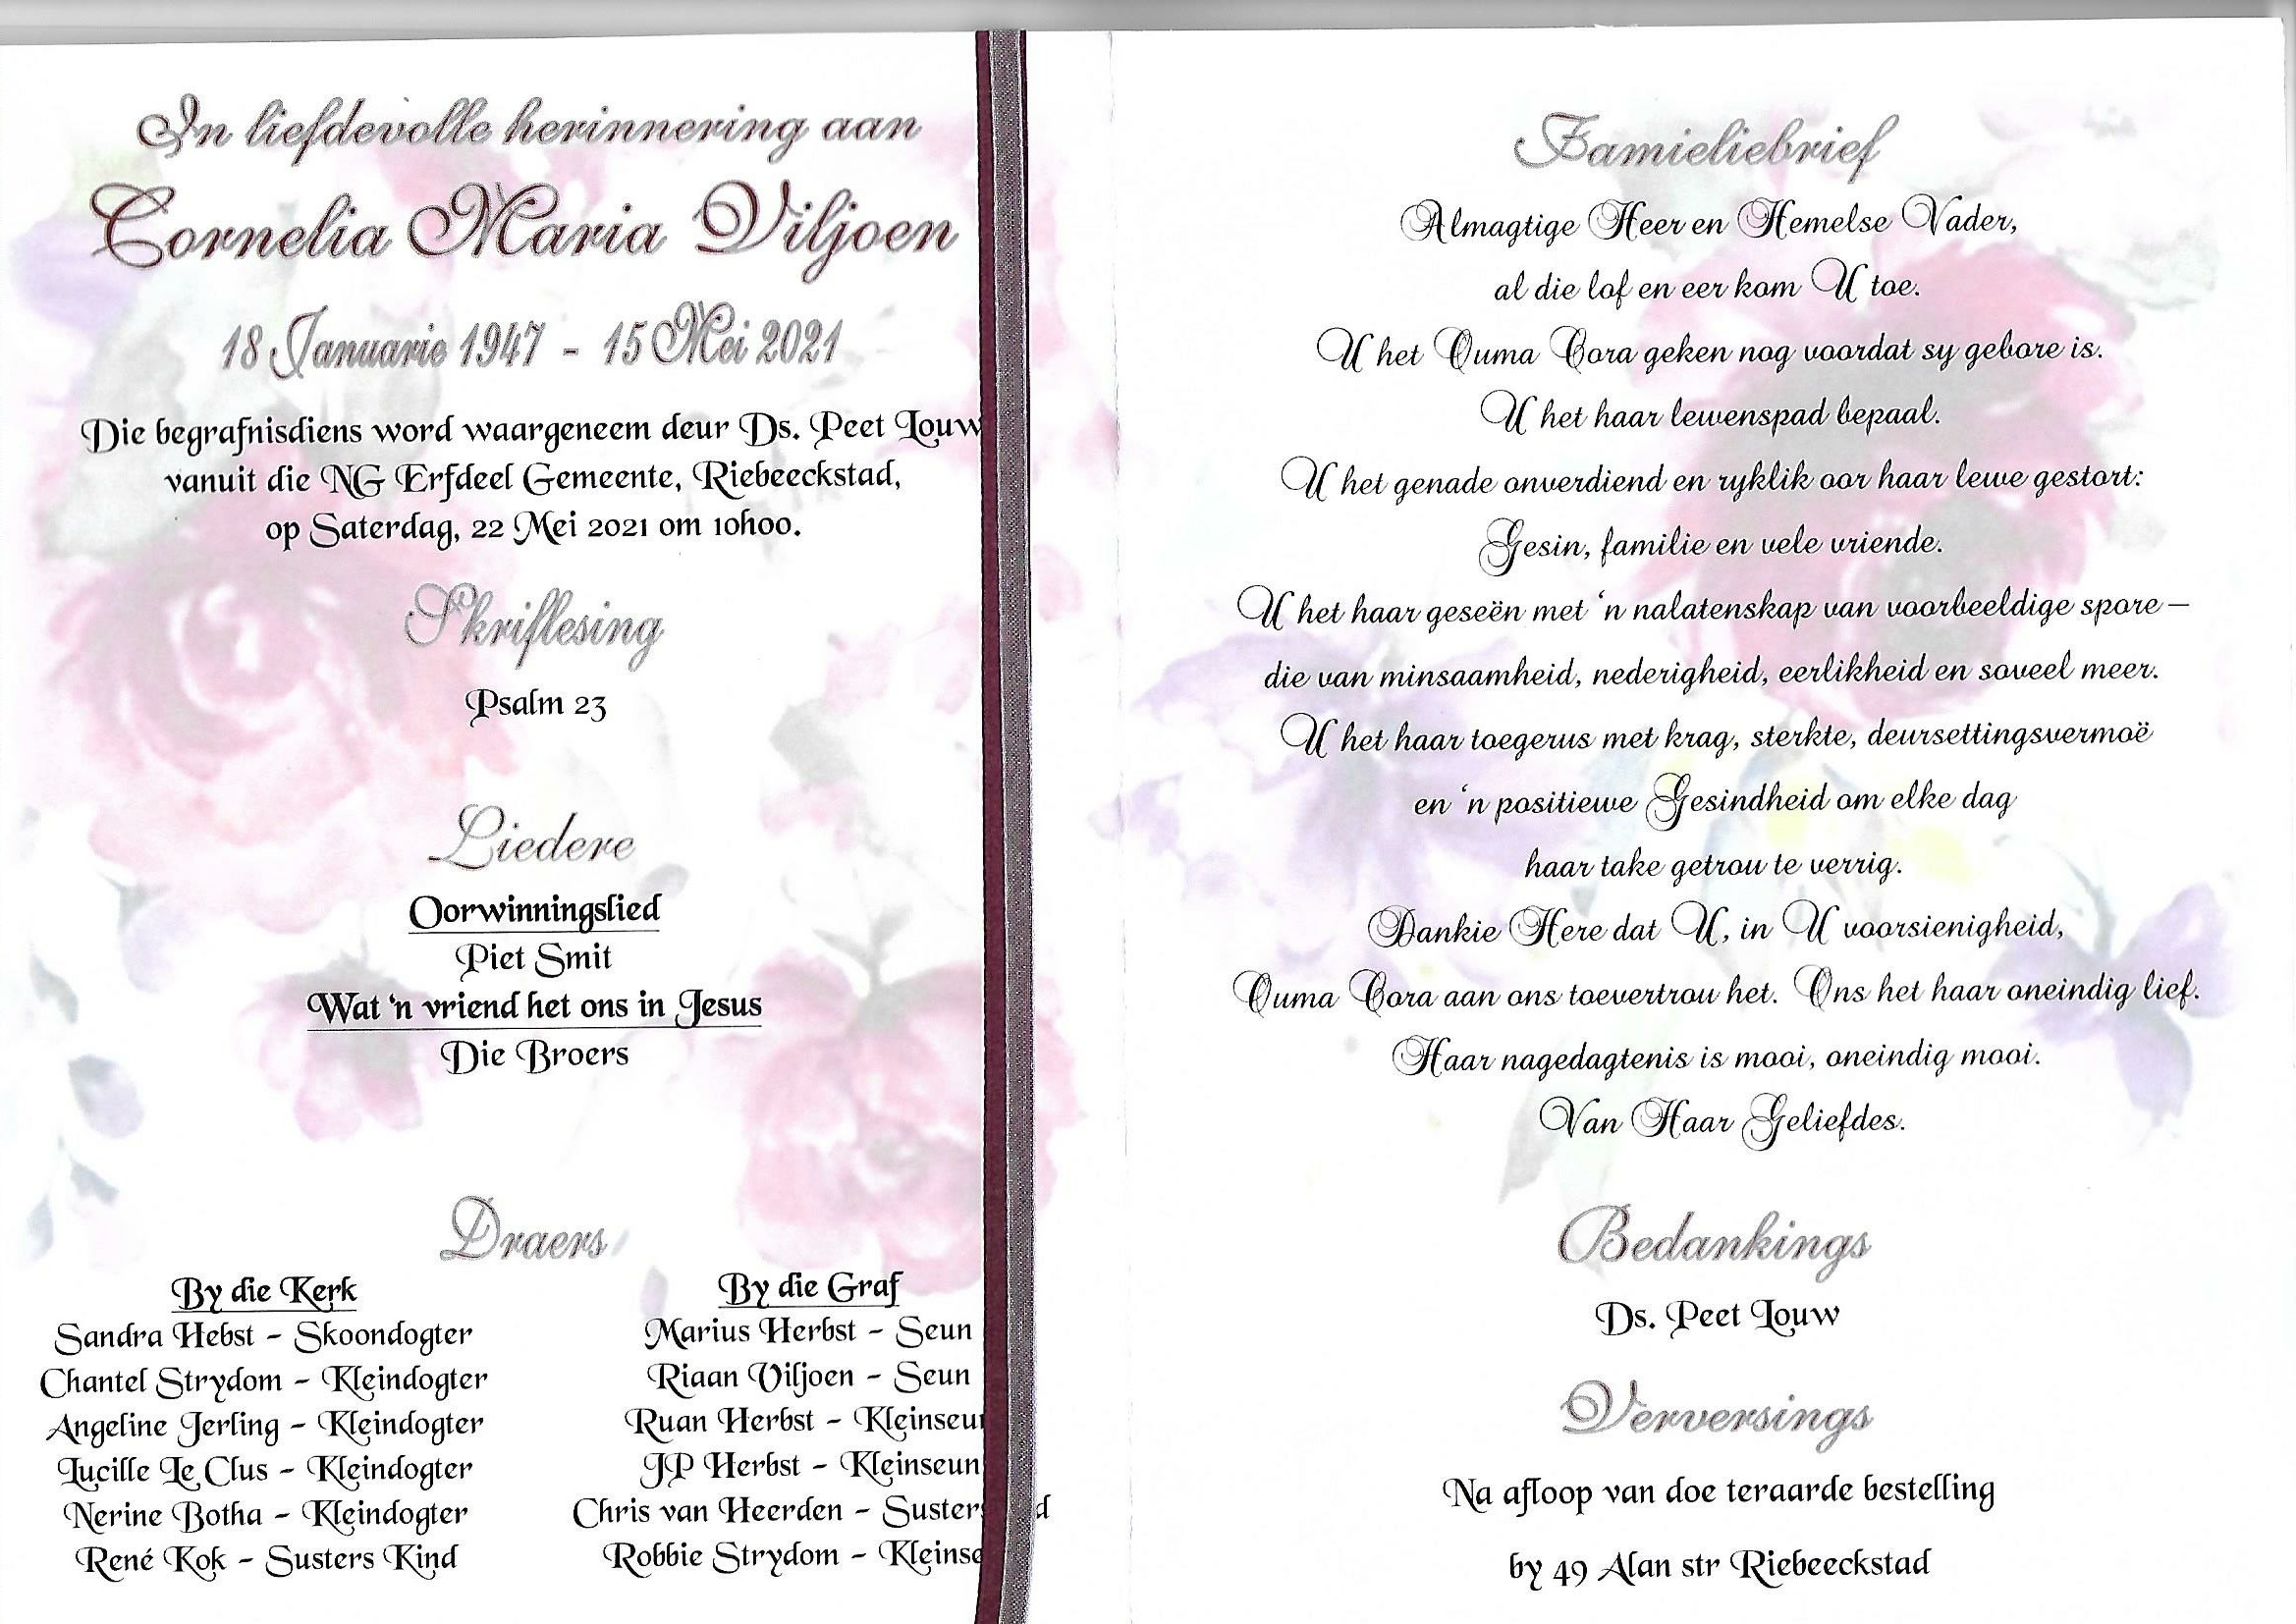 In liefdevolle herinnering aan
Cornelia Maria Viljoen
18 Januarie 1947 - 15 Mei 2021
Die begrafnisdiens word waargeneem deur Ds. Peet Louw
vanuit die NG Erfdeel Gemeente, Riebeeckstad,
op Saterdag, 22 Mei 2021 om 10h00.
Skriflesing
Psalm 23
Liedere
Oorwinningslied
Piet Smit
Wat 'n vriend het ons in Jesus
Die Broers
Draers
By die Kerk
Sandra Hebst - Skoondogter
Chantel Strydom - Kleindogter
Angeline Jerling - Kleindogter
Lucille Le Clus - Kleindogter
Nerine Botha - Kleindogter
René Kok - Susters Kind
By die Graf
Marius Herbst - Seun
Riaan Viljoen - Seun
Ruan Herbst - Kleinseun
JP Herbst - Kleinseun
Chris van Heerden - Susters
Robbie Strydom -
Famieliebrief
Almagtige Heer en Hemelse Vader,
al die lof en eer kom U toe.
U het Ouma Cora geken nog voordat sy gebore is.
U het haar lewenspad bepaal.
U het genade onverdiend en ryklik oor haar lewe gestort:
Gesin, familie en vele vriende.
U het haar geseën met 'n nalatenskap van voorbeeldige spore –
die van minsaamheid, nederigheid, eerlikheid en soveel meer.
U het haar toegerus met krag, sterkte, deursettingsvermoë
en 'n positiewe Gesindheid om elke dag
haar take getrou te verrig.
Dankie Here dat U, in U voorsienigheid,
Ouma Cora aan ons toevertrou het. Ons het haar oneindig lief.
Haar nagedagtenis is mooi, oneindig mooi.
Van Haar Geliefdes.
Bedankings
Ds. Peet Louw
Verversings
Na afloop van doe teraarde bestelling
by 49 Alan str Riebeeckstad